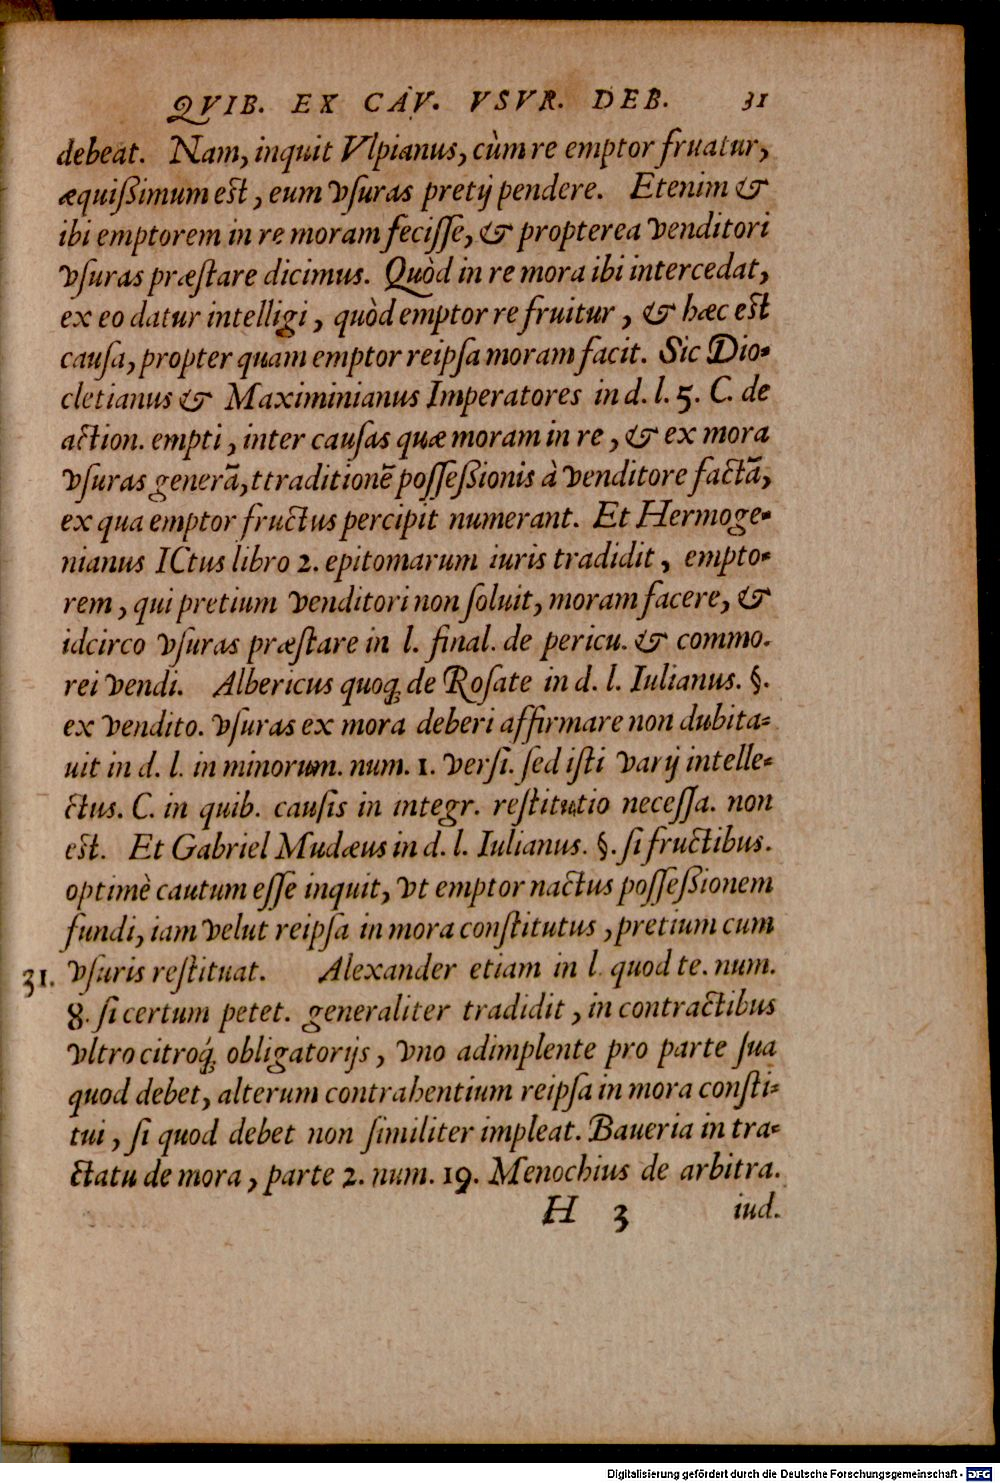 QVIB. EX CAV. VSVR. DEB. 31
debeat. Nam, inquit Vlpianus, cùm re emptor fruatur,
æquißimum est, eum vſuras pretij pendere. Etenim &
ibi emptorem in re moram feciſſe, & propterea venditori
vſuras præſtare dicimus. Quòd in re mora ibi intercedat,
ex eo datur intelligi, quòd emptor re fruitur, & hæc est
cauſa, propter quam emptor reipſa moram facit. Sic Dio-
cletianus & Maximinianus Imperatores in d. l. 5. C. de
action. empti, inter cauſas quæ moram in re, & ex mora
vſuras generā, ttraditionē poſſeßionis à venditore factā,
ex qua emptor fructus percipit numerant. Et Hermoge-
nianus ICtus libro 2. epitomarum iuris tradidit, empto-
rem, qui pretium venditori non ſoluit, moram facere, &
idcirco vſuras præſtare in l. final. de pericu. & commo.
rei vendi. Albericus quoq; de Roſate in d. l. Iulianus. §.
ex vendito. vſuras ex mora deberi affirmare non dubita-
uit in d. l. in minorum. num. 1. verſi. ſed iſti varij intelle-
ctus. C. in quib. cauſis in integr. reſtitutio neceſſa. non
est. Et Gabriel Mudæus in d. l. Iulianus. §. ſi fructibus.
optimè cautum eſſe inquit, vt emptor nactus poſſeßionem
fundi, iam velut reipſa in mora conſtitutus, pretium cum
31. vſuris reſtituat. Alexander etiam in l. quod te. num.
8. ſi certum petet. generaliter tradidit, in contractibus
vltro citroq́; obligatorijs, vno adimplente pro parte ſua
quod debet, alterum contrahentium reipſa in mora conſti-
tui, ſi quod debet non ſimiliter impleat. Baueria in tra-
ctatu de mora, parte 2. num. 19. Menochius de arbitra.
H 3 iud.
Digitalisierung gefördert durch die Deutsche Forschungsgemeinschaft - DFG